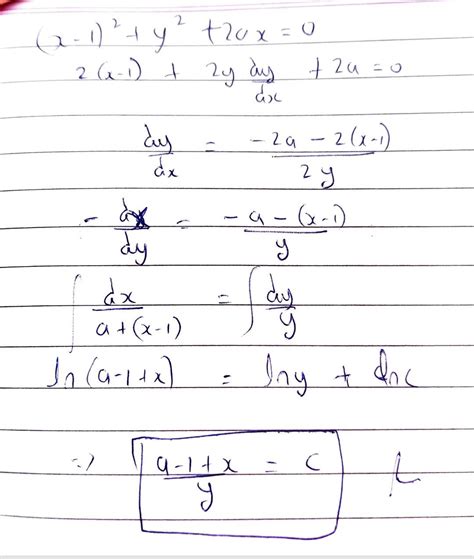 (x-1)² + y² + 2ax = 0
2(x-1) + 2y dy/dx + 2a = 0
dy/dx = (-2a - 2(x-1))/2y
- dx/dy = (-a - (x-1))/y
∫ dx/(a+(x-1)) = ∫ dy/y
ln(a-1+x) = lny + lnc
=> (a-1+x)/y = c